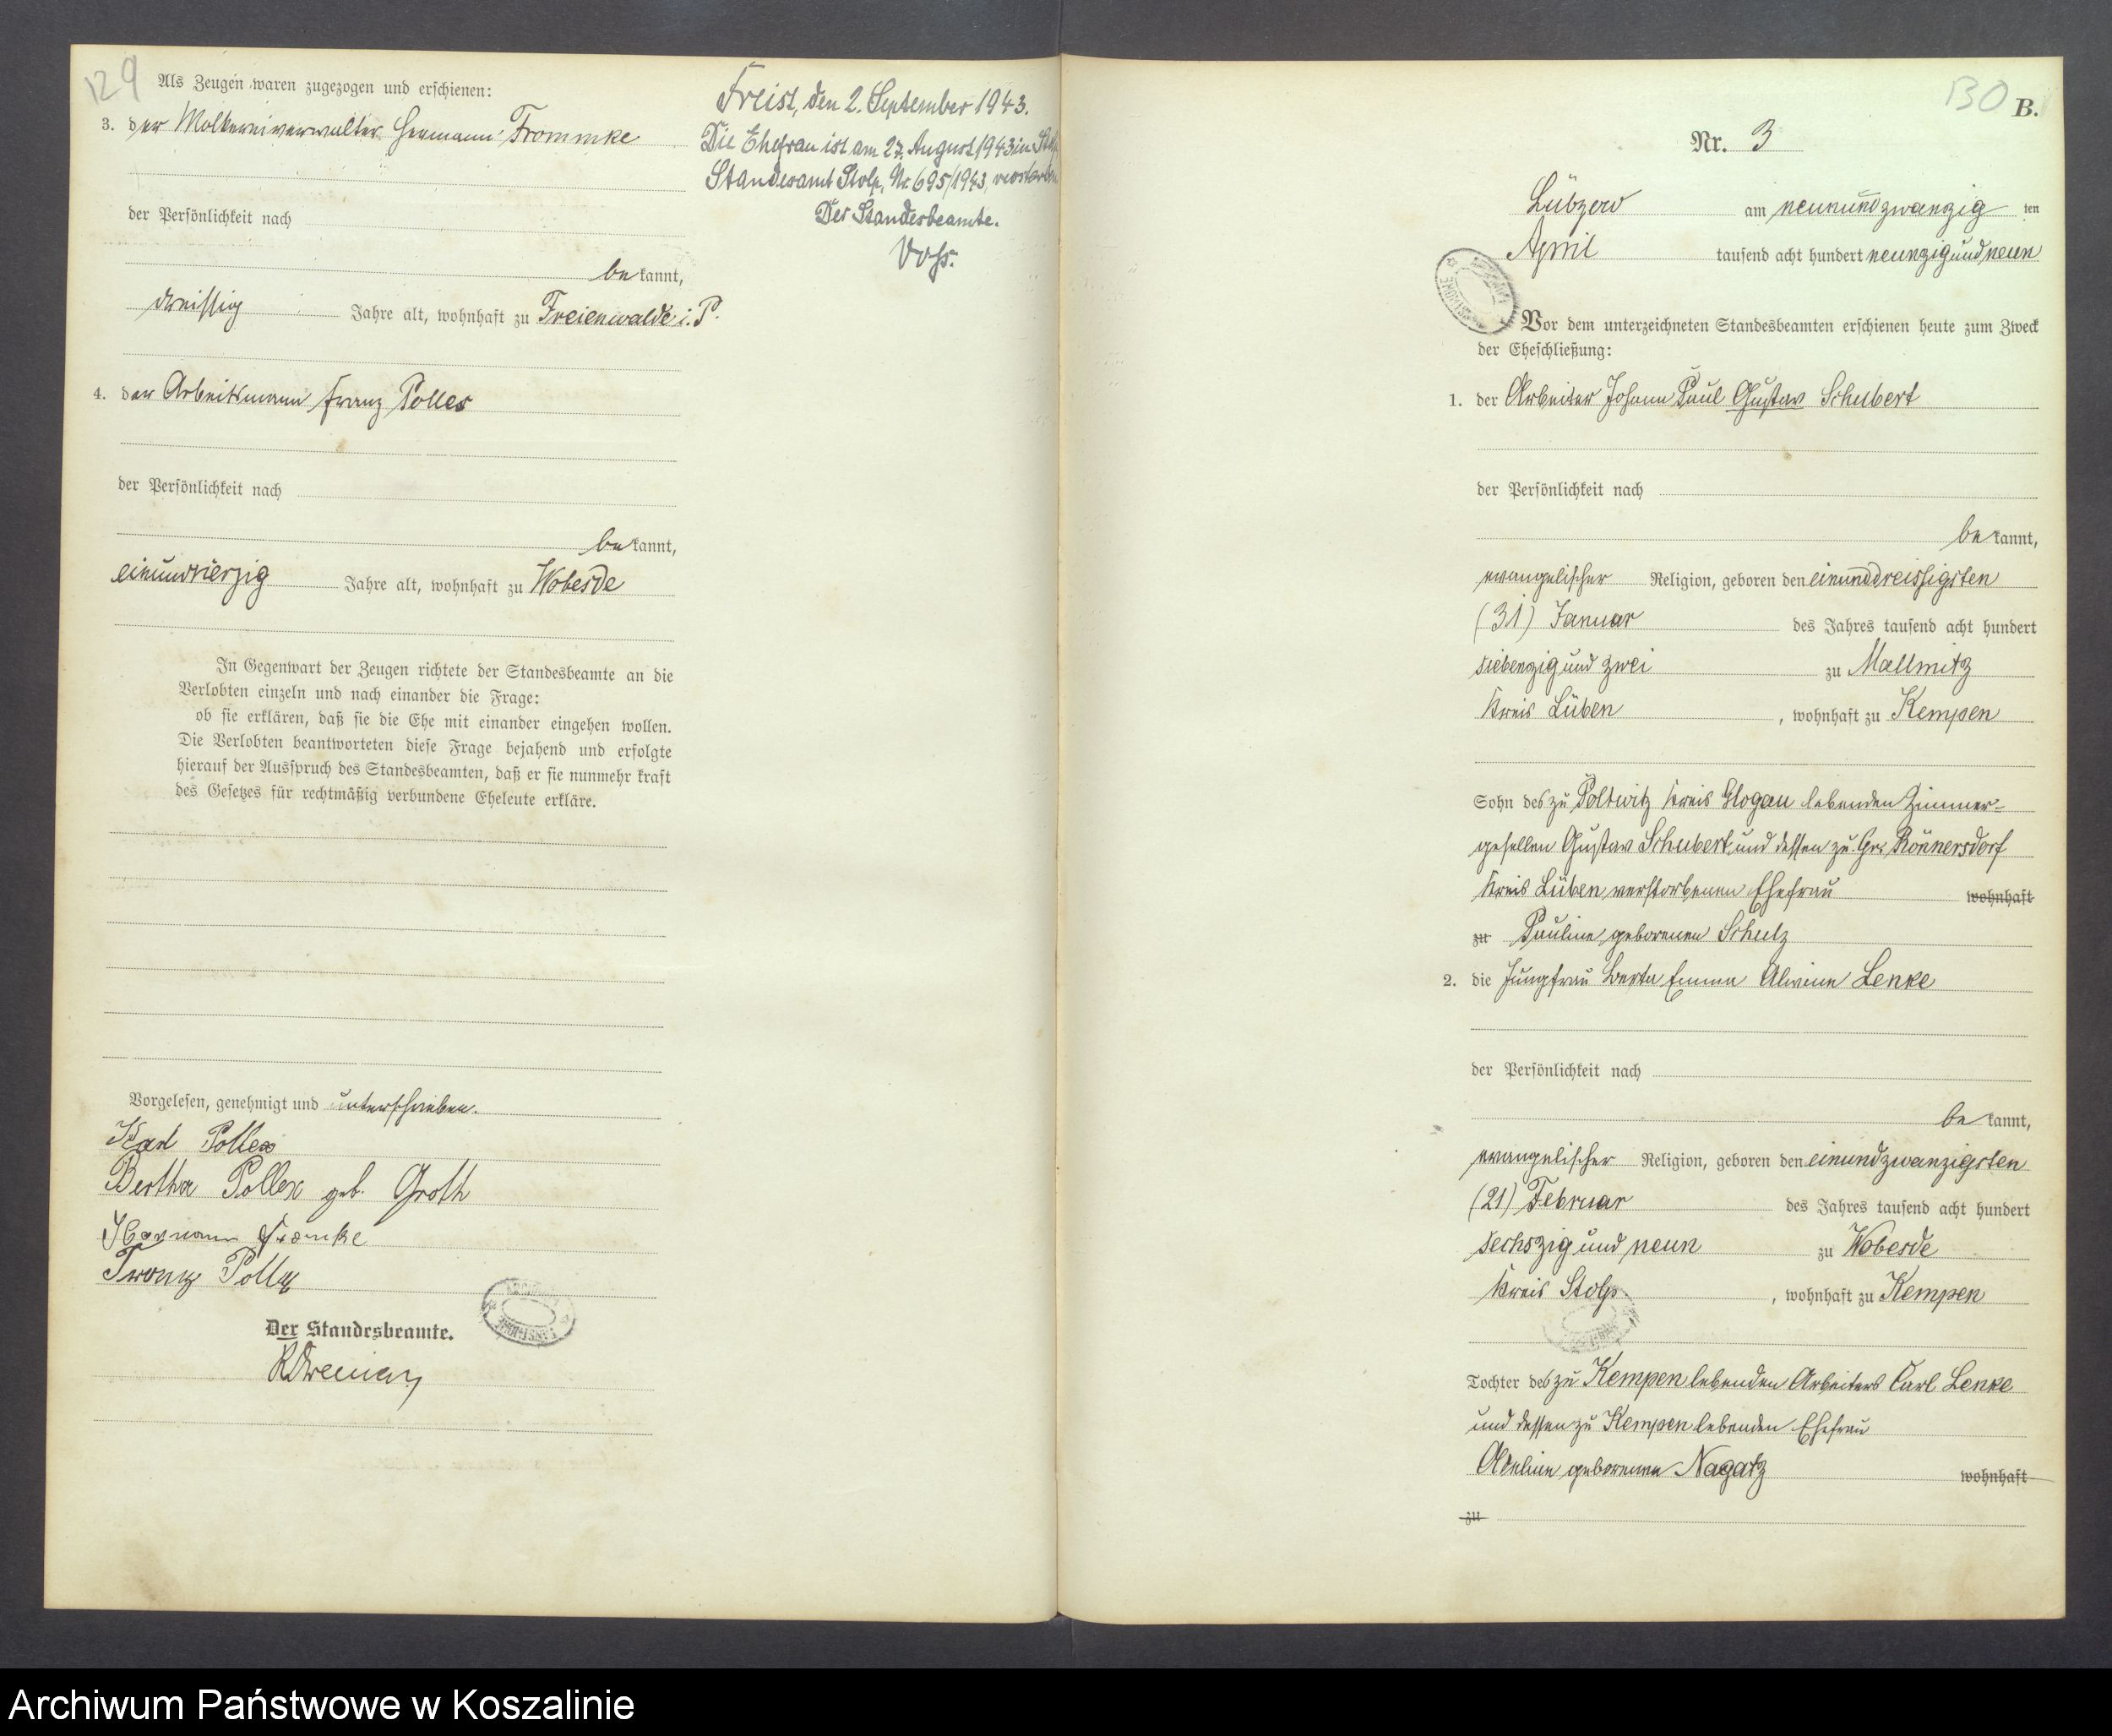 129
Als Zeugen waren zugezogen und erschienen:
3. der Molkereiverwalter Hermann Frommke
der Persönlichkeit nach
bekannt,
dreissig Jahre alt, wohnhaft zu Freienwalde i. P.
4. der Arbeitsmann Franz Pollex
der Persönlichkeit nach
bekannt,
einundvierzig Jahre alt, wohnhaft zu Wobesde
In Gegenwart der Zeugen richtete der Standesbeamte an die
Verlobten einzeln und nach einander die Frage:
ob sie erklären, daß sie die Ehe mit einander eingehen wollen.
Die Verlobten beantworteten diese Frage bejahend und erfolgte
hierauf der Ausspruch des Standesbeamten, daß er sie nunmehr kraft
des Gesetzes für rechtmäßig verbundene Eheleute erkläre.
Vorgelesen, genehmigt und unterschrieben.
Karl Pollex
Bertha Pollex geb. Groth
Hermann Fromke
Franz Pollex
Der Standesbeamte.
Freist, den 2. September 1943.
Die Ehefrau ist am 27. August 1943 in
Standesamt Stolp, Nr 695/1943, verstorben
Der Standesbeamte.
Voß.
130 B.
Nr. 3
Lübzow am neunundzwanzig ten
April tausend acht hundert neunzig und neun
Vor dem unterzeichneten Standesbeamten erschienen heute zum Zweck
der Eheschließung:
1. der Arbeiter Johann Paul Gustav Schubert
der Persönlichkeit nach
bekannt,
evangelischer Religion, geboren den einunddreissigsten
(31) Januar des Jahres tausend acht hundert
siebenzig und zwei zu Mallmitz
Kreis Lüben, wohnhaft zu Kempen
Sohn des zu Polkwitz Kreis Glogau lebenden Zimmer-
gesellen Gustav Schubert und dessen zu Gr. Rönnersdorf
Kreis Lüben verstorbenen Ehefrau wohnhaft
zu Pauline geborenen Schulz
2. die Jungfrau Berta Emma Alwine Lenke
der Persönlichkeit nach
bekannt,
evangelischer Religion, geboren den einundzwanzigsten
(21) Februar des Jahres tausend acht hundert
sechszig und neun zu Wobesde
Kreis Stolp, wohnhaft zu Kempen
Tochter des zu Kempen lebenden Arbeiters Carl Lenke
und dessen zu Kempen lebenden Ehefrau
Adeline geborenen Nagatz wohnhaft
zu
Archiwum Państwowe w Koszalinie